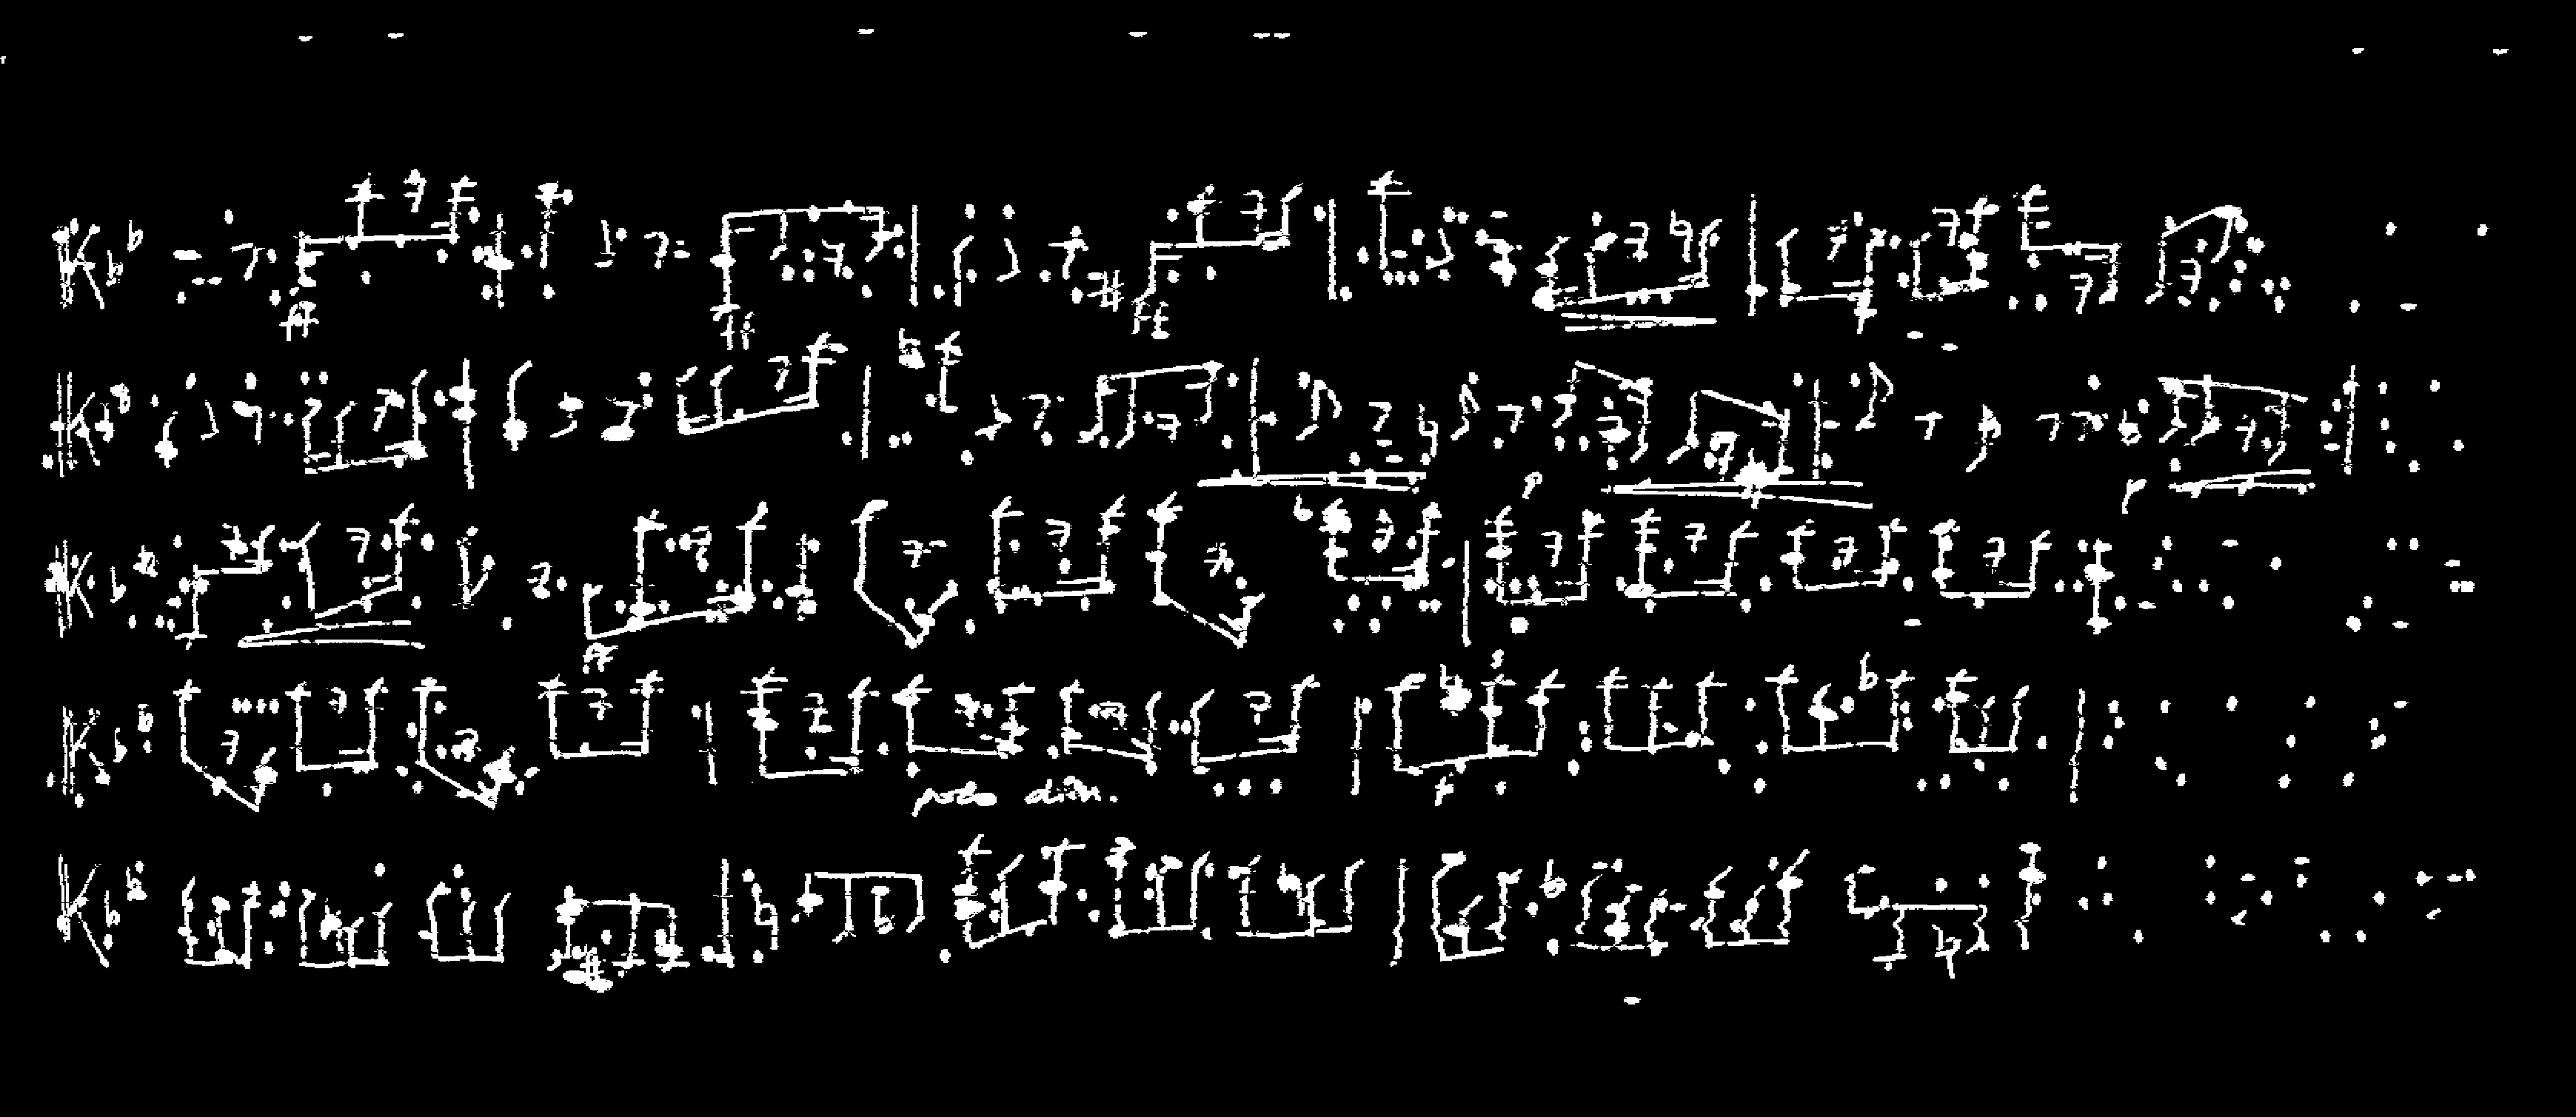 ff ff ff
p p
ff
poco dim. f